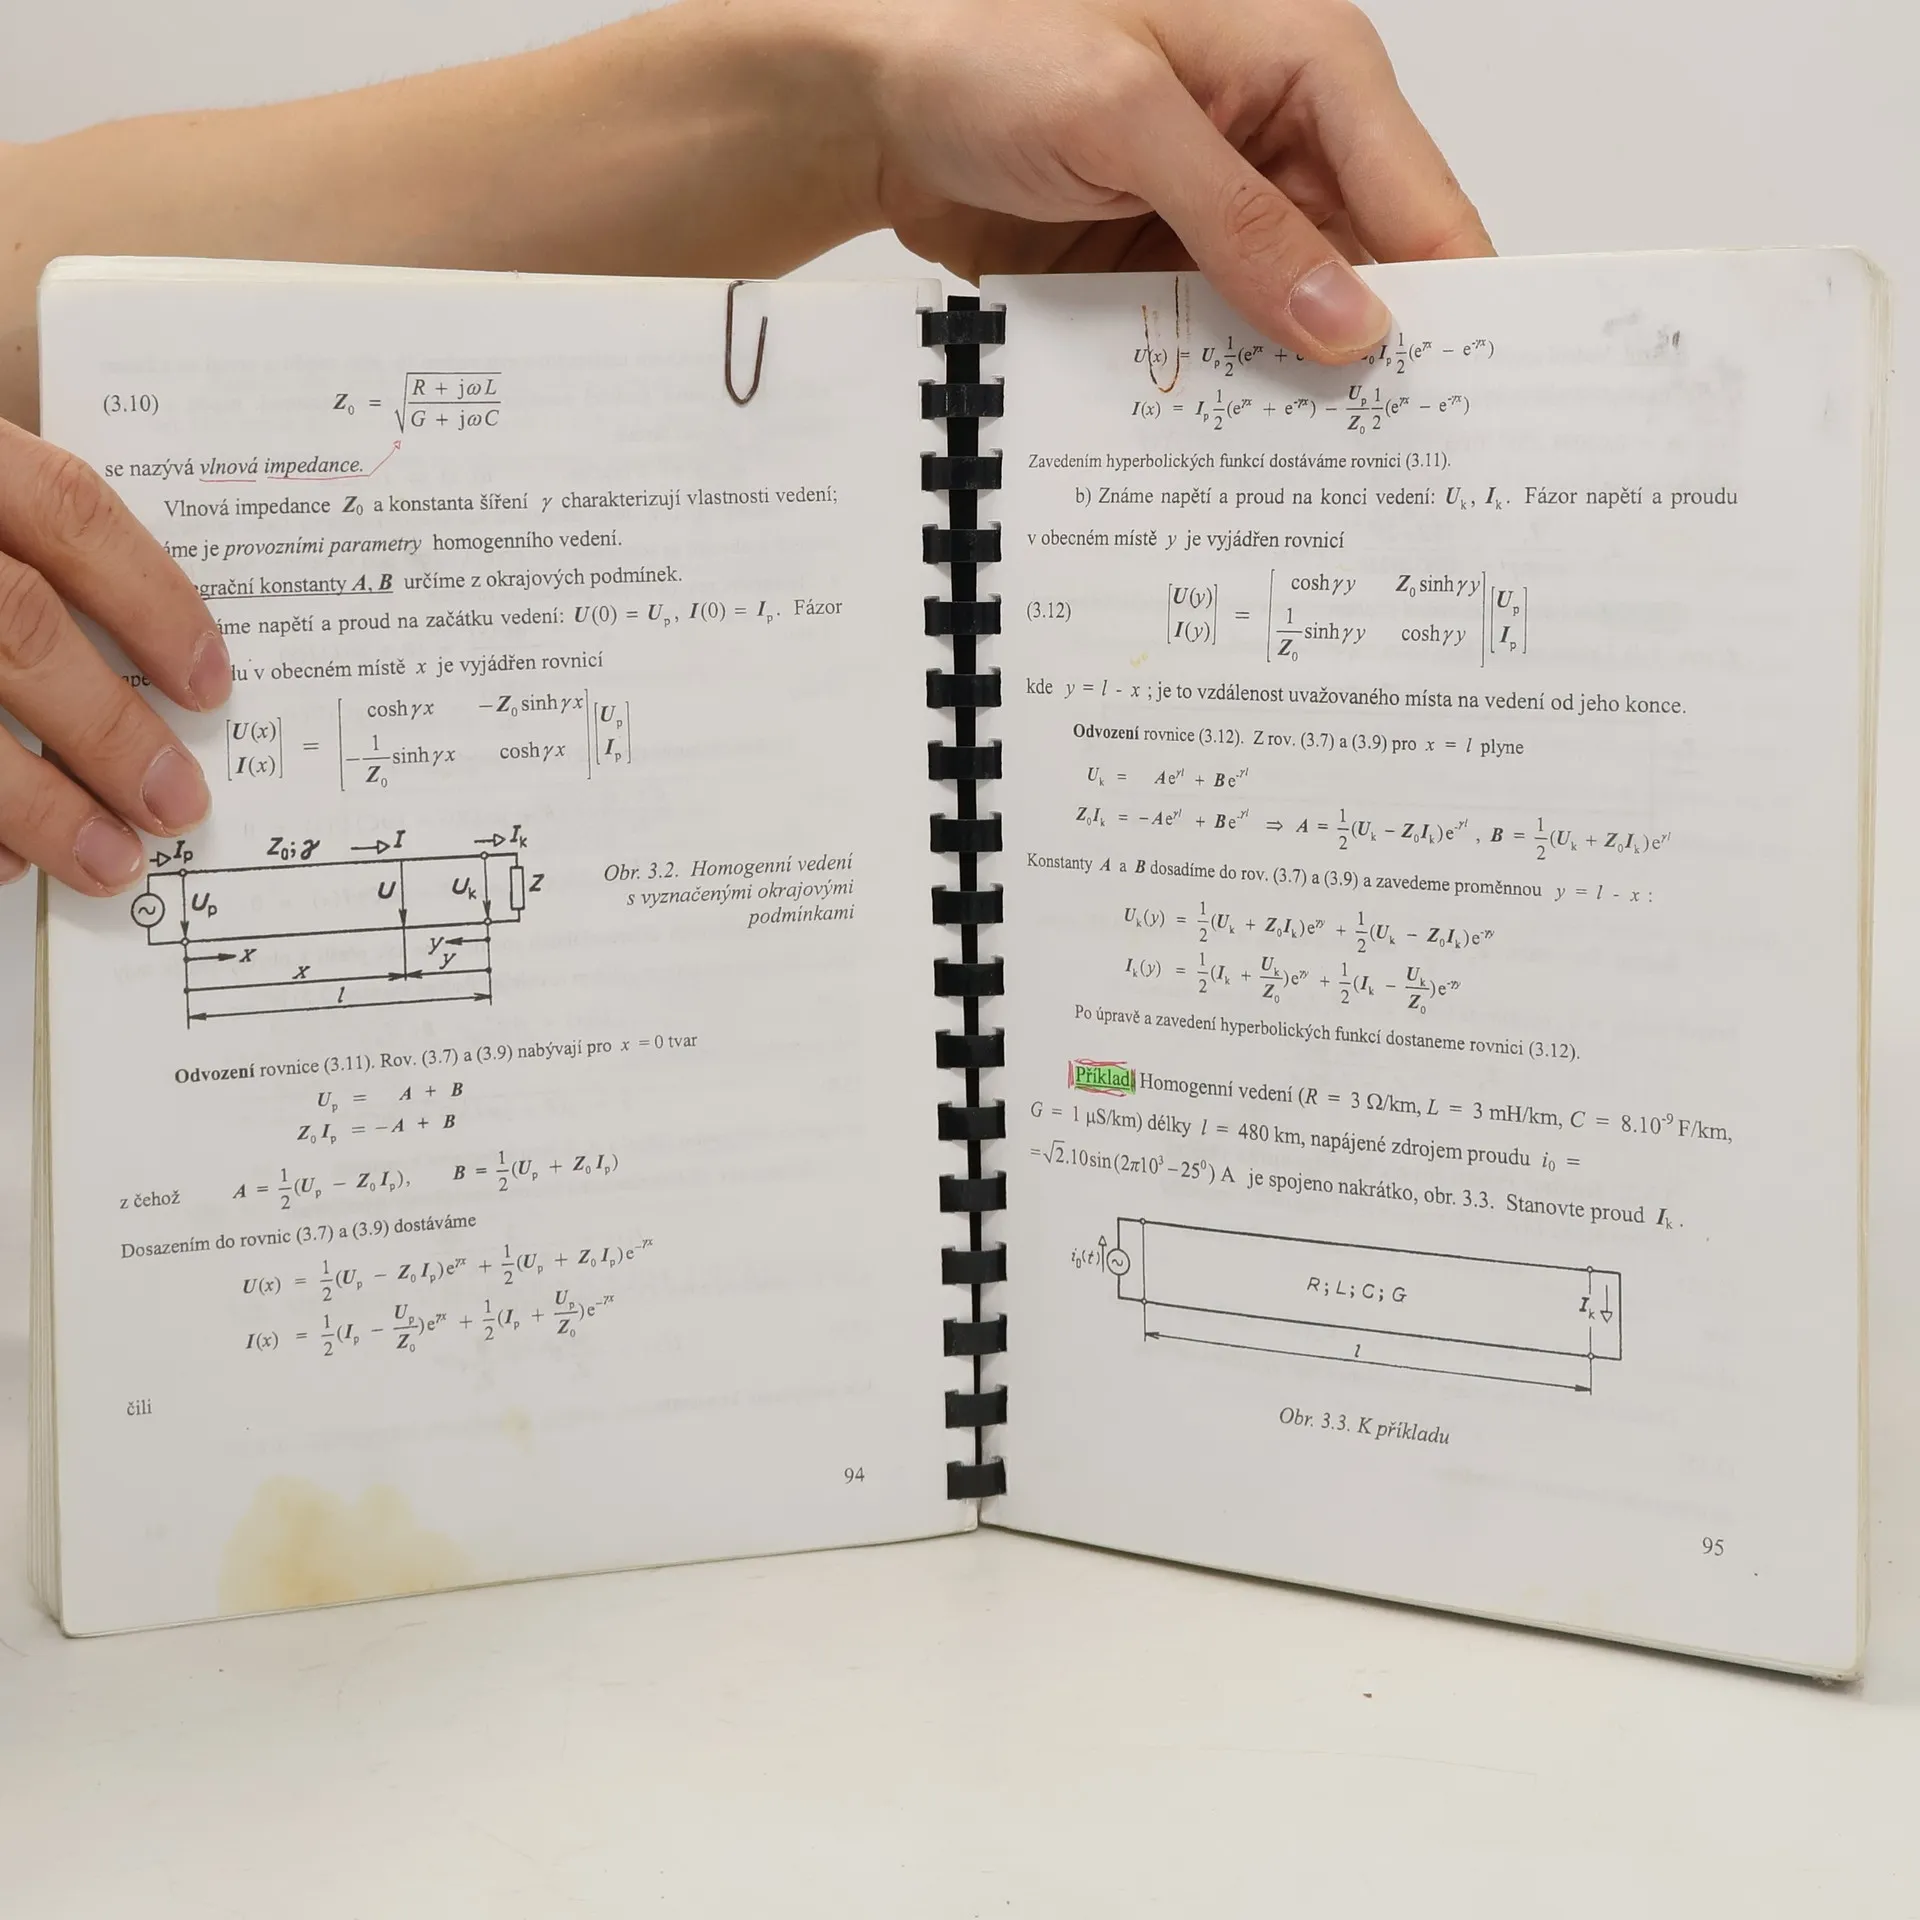 (3.10) Z₀ = √((R + jωL)/(G + jωC))
se nazývá vlnová impedance.
Vlnová impedance Z₀ a konstanta šíření γ charakterizují vlastnosti vedení;
je provozními parametry homogenního vedení.
konstanty A, B určíme z okrajových podmínek.
napětí a proud na začátku vedení: U(0) = Uₚ, I(0) = Iₚ. Fázor
v obecném místě x je vyjádřen rovnicí
[U(x)] = [coshγx −Z₀sinhγx] [Uₚ]
[I(x)] [−1/Z₀ sinhγx coshγx] [Iₚ]
Iₚ Z₀; γ I Iₖ
Uₚ U Uₖ Z
x y
x y
l
Obr. 3.2. Homogenní vedení
s vyznačenými okrajovými
podmínkami
Odvození rovnice (3.11). Rov. (3.7) a (3.9) nabývají pro x = 0 tvar
Uₚ = A + B
Z₀Iₚ = −A + B
z čehož A = ½(Uₚ − Z₀Iₚ), B = ½(Uₚ + Z₀Iₚ)
Dosazením do rovnic (3.7) a (3.9) dostáváme
U(x) = ½(Uₚ − Z₀Iₚ)e^γx + ½(Uₚ + Z₀Iₚ)e^−γx
I(x) = ½(Iₚ − Uₚ/Z₀)e^γx + ½(Iₚ + Uₚ/Z₀)e^−γx
čili
94
U(x) = Uₚ½(e^γx + Iₚ½(e^γx − e^-γx)
I(x) = Iₚ½(e^γx + e^-γx) − Uₚ/Z₀ ½(e^γx − e^-γx)
Zavedením hyperbolických funkcí dostáváme rovnici (3.11).
b) Známe napětí a proud na konci vedení: Uₖ, Iₖ. Fázor napětí a proudu
v obecném místě y je vyjádřen rovnicí
(3.12) [U(y)] = [coshγy Z₀sinhγy] [Uₚ]
[I(y)] [1/Z₀ sinhγy coshγy] [Iₚ]
kde y = l - x ; je to vzdálenost uvažovaného místa na vedení od jeho konce.
Odvození rovnice (3.12). Z rov. (3.7) a (3.9) pro x = l plyne
Uₖ = Ae^γl + Be^-γl
Z₀Iₖ = −Ae^γl + Be^-γl ⇒ A = ½(Uₖ − Z₀Iₖ)e^-γl , B = ½(Uₖ + Z₀Iₖ)e^γl
Konstanty A a B dosadíme do rov. (3.7) a (3.9) a zavedeme proměnnou y = l - x :
Uₖ(y) = ½(Uₖ + Z₀Iₖ)e^γy + ½(Uₖ − Z₀Iₖ)e^-γy
Iₖ(y) = ½(Iₖ + Uₖ/Z₀)e^γy + ½(Iₖ − Uₖ/Z₀)e^-γy
Po úpravě a zavedení hyperbolických funkcí dostaneme rovnici (3.12).
Příklad. Homogenní vedení (R = 3 Ω/km, L = 3 mH/km, C = 8.10⁻⁹ F/km,
G = 1 μS/km) délky l = 480 km, napájené zdrojem proudu i₀ =
=√2.10sin(2π10³−25⁰) A je spojeno nakrátko, obr. 3.3. Stanovte proud Iₖ.
i₀(t) R; L; C; G Iₖ
l
Obr. 3.3. K příkladu
95